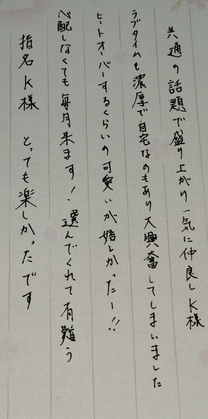 共通の話題で盛り上がり一気に仲良しK様
ラブタイムも濃厚で自宅なのもあり大興奮してしまいました
ヒートオーバーするくらいの可愛いが嬉しかったー!!
心配しなくても毎月来ます!選んでくれて有難う
指名K様 とっても楽しかったです